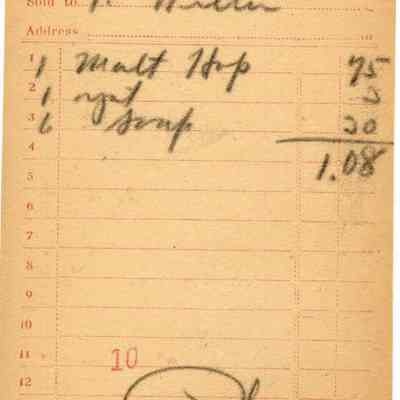 Sold to
Address
1 1 Malt Hop 75
2 1 3
3 6 Soup 30
4
1.08
5
6
7
8
9
10
11 10
12